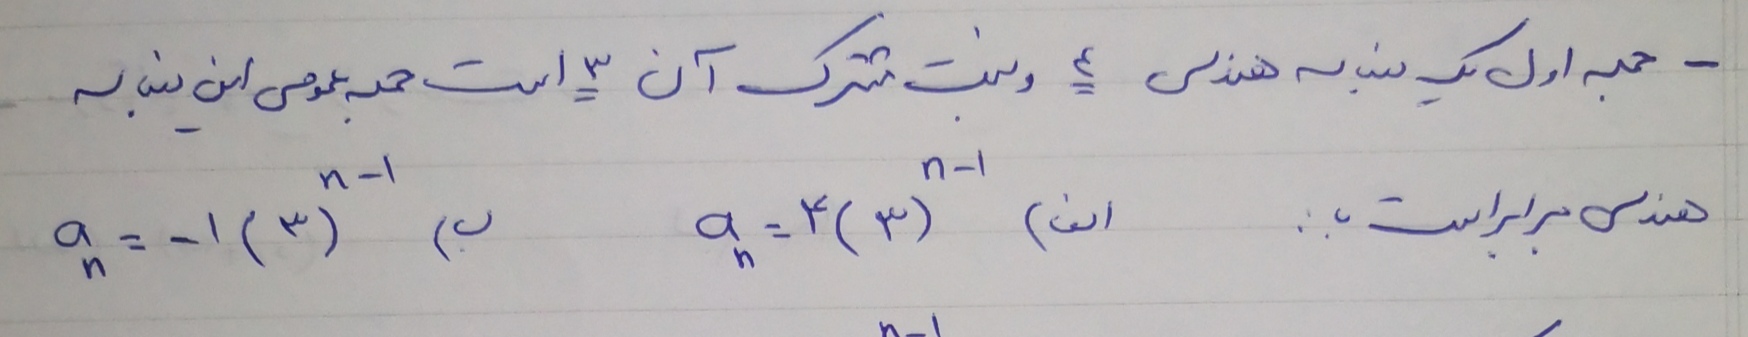 - حد اول یک دنباله هندسی ٤ و نسبت مشترک آن ۳ است حد عمومی این دنباله
هندسی برابر است به: الف) aₙ = ۴(۳)ⁿ⁻¹ ب) aₙ = -۱(۳)ⁿ⁻¹
n-1